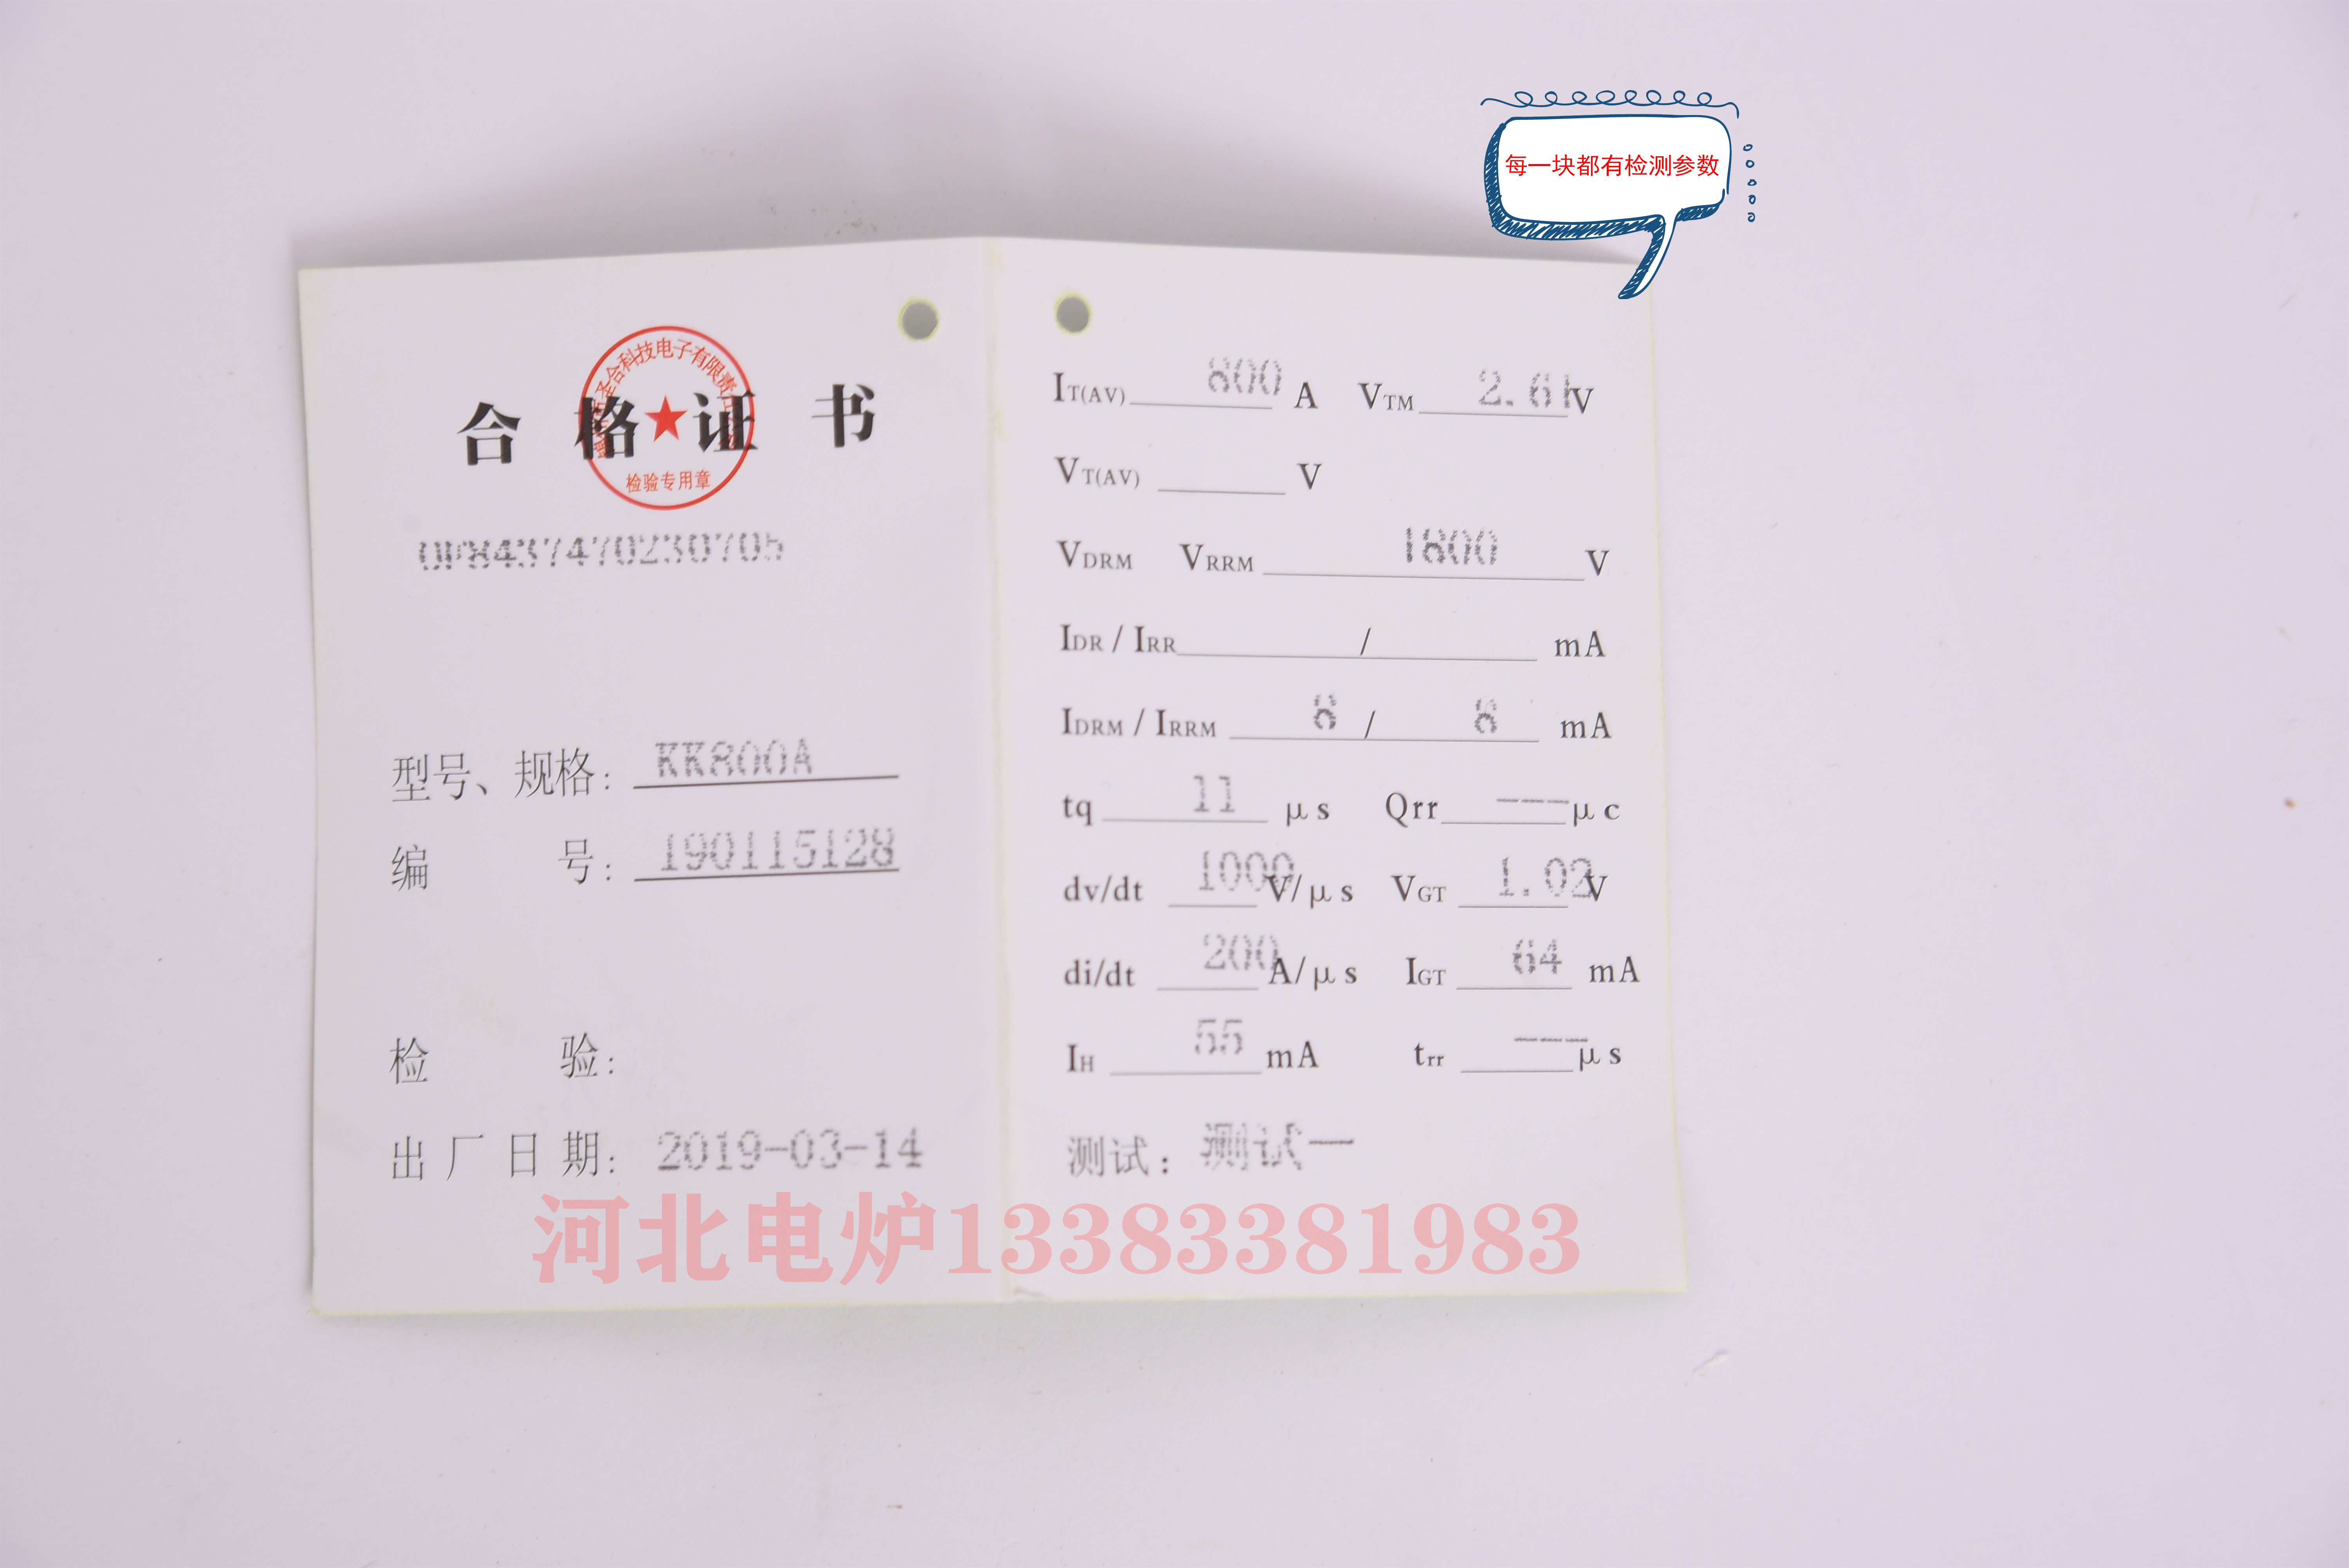 每一块都有检测参数
合格证书
圣合科技电子有限责
检验专用章
型号、规格: KK800A
编号: 190115128
检验:
出厂日期: 2019-03-14
IT(AV) 800 A VTM 2.61 V
VT(AV) V
VDRM VRRM 1800 V
IDR / IRR / mA
IDRM / IRRM 8 / 8 mA
tq 11 μs Qrr ---- μc
dv/dt 1000 V/μs VGT 1.02 V
di/dt 200 A/μs IGT 64 mA
IH 55 mA trr ---- μs
测试: 测试一
河北电炉13383381983